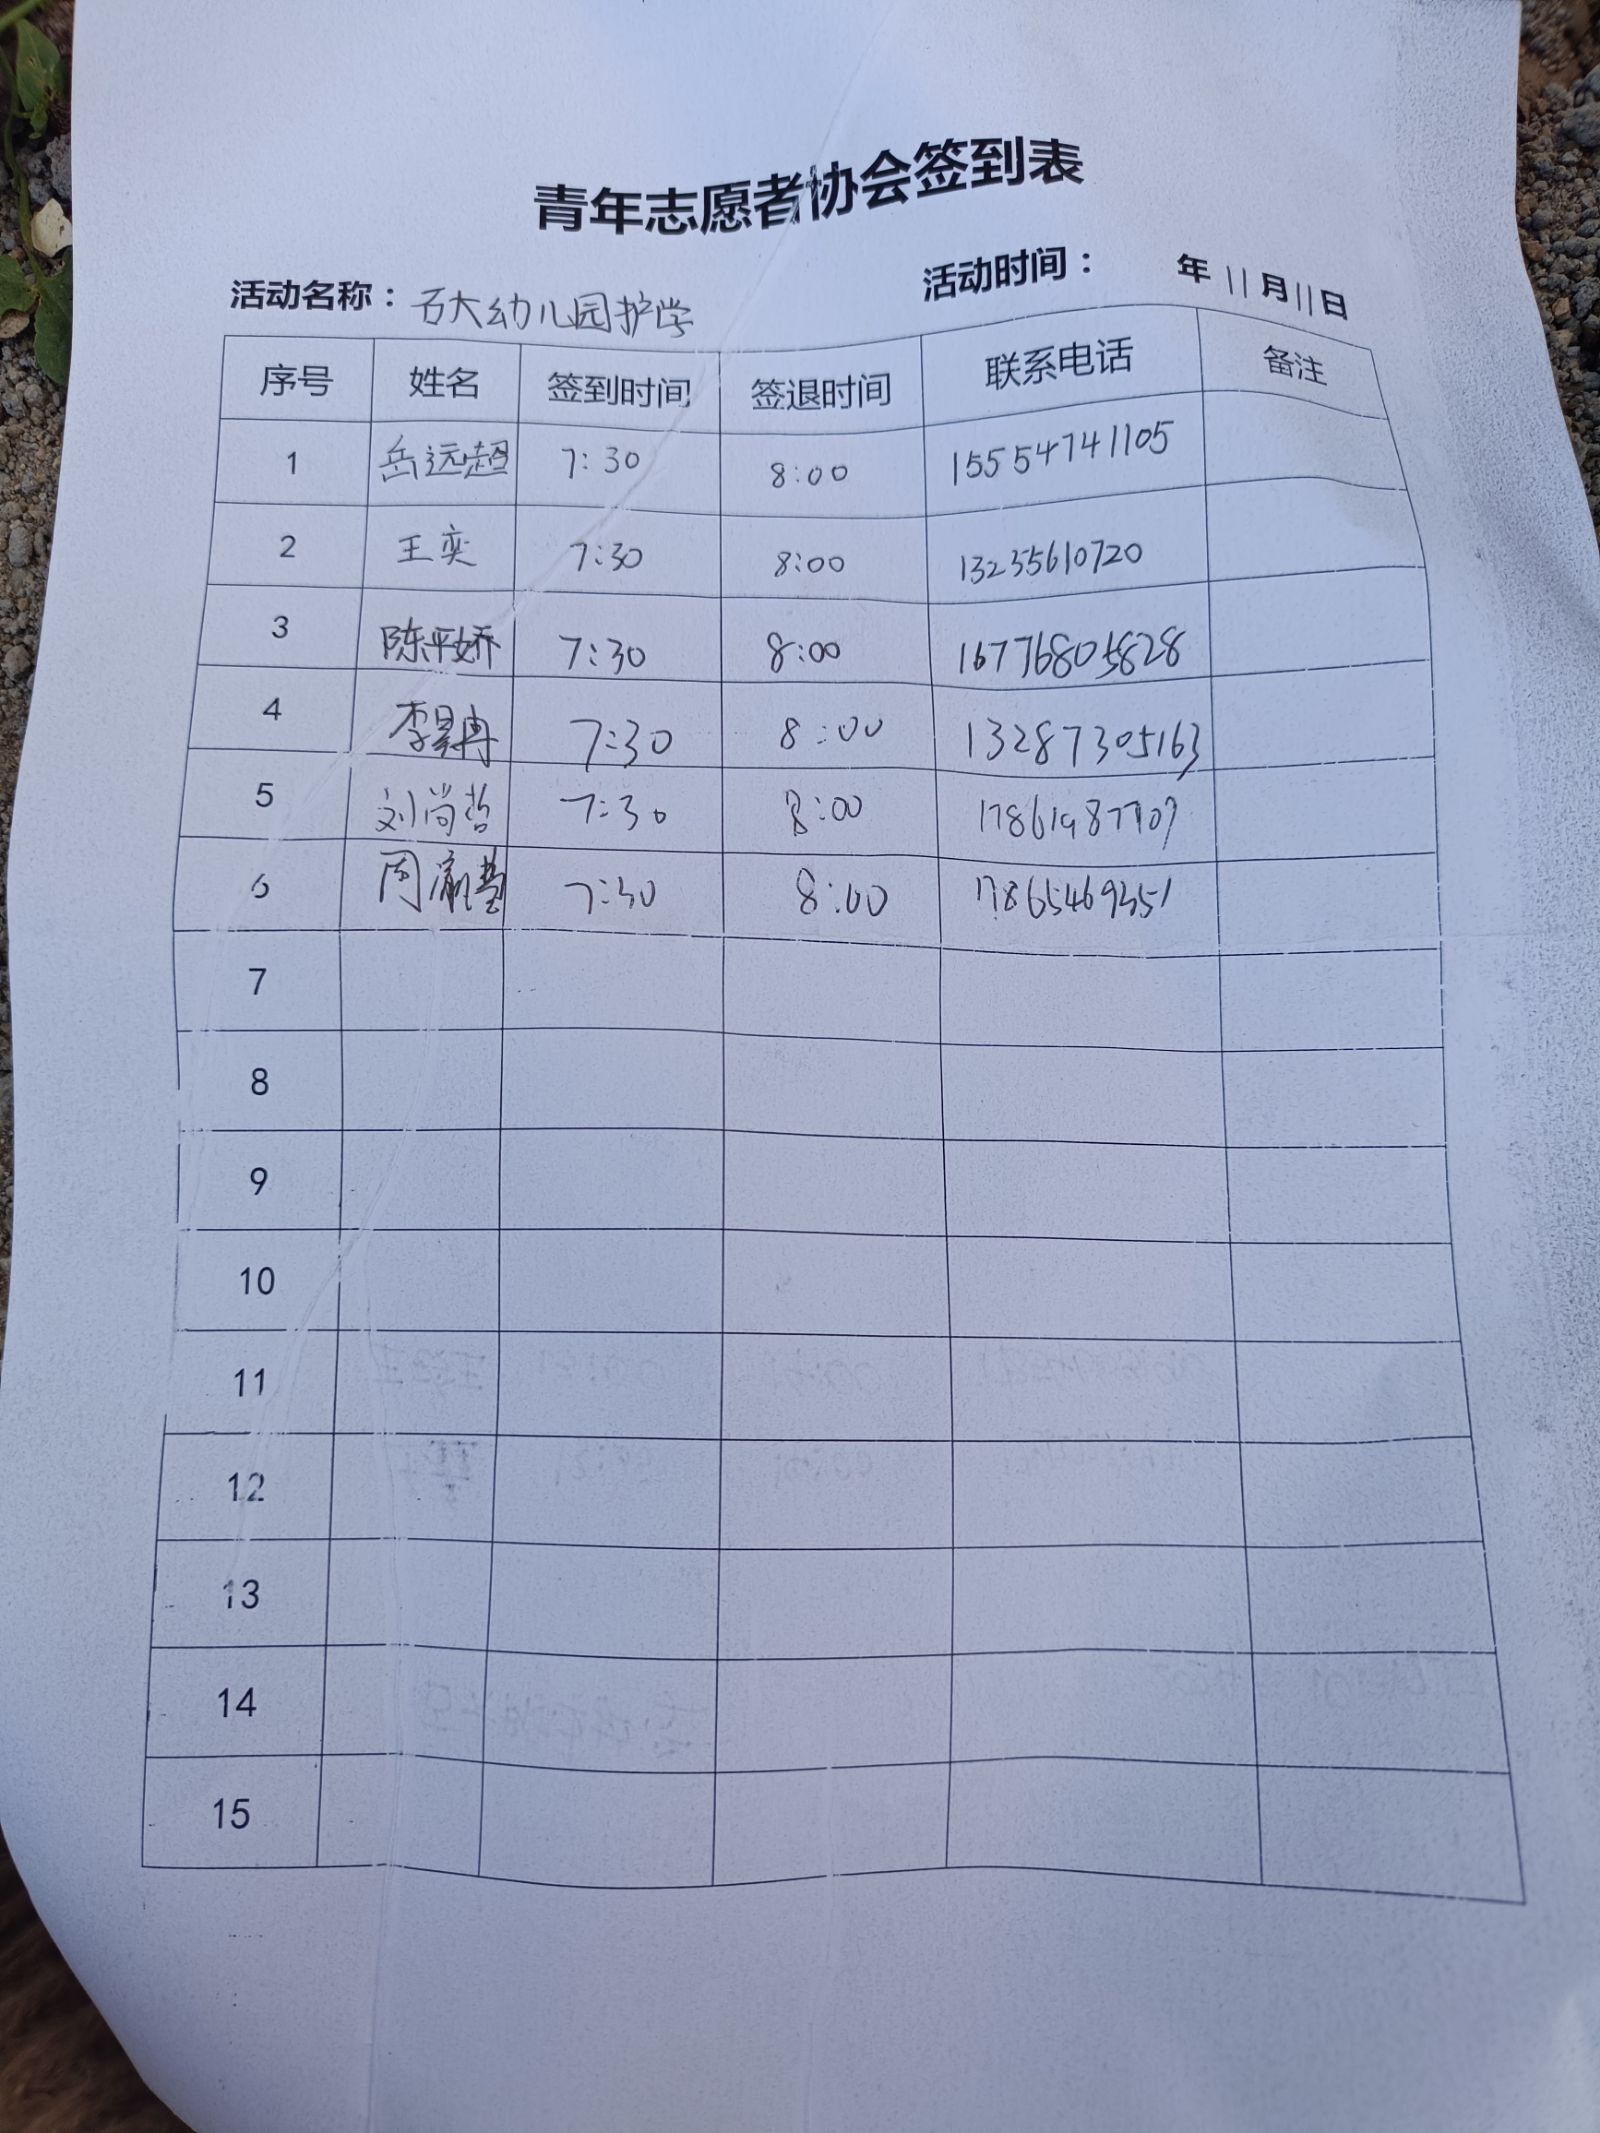 青年志愿者协会签到表
活动名称：石大幼儿园护学 活动时间： 年 11月11日
序号 姓名 签到时间 签退时间 联系电话 备注
1 岳远超 7:30 8:00 15554741105
2 王奕 7:30 8:00 13235610720
3 陈平娇 7:30 8:00 16776805828
4 李昊冉 7:30 8:00 13287305163
5 刘尚哲 7:30 8:00
6 周 7:30 8:00 17865469351
7
8
9
10
11
12
13
14
15